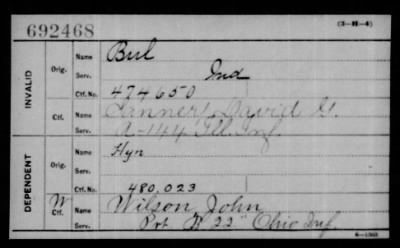 692468 (3-H-4)
INVALID
Orig. Name Bul
Serv. Ind
Ctf. No. 474650
Ctf. Name Tanner, David G.
Serv. A-144 Ill. Inf.
DEPENDENT
Orig. Name Hyn
Serv.
Ctf. No. 480,023
W Ctf. Name Wilson, John
Serv. Pvt. 23" Ohio Inf.